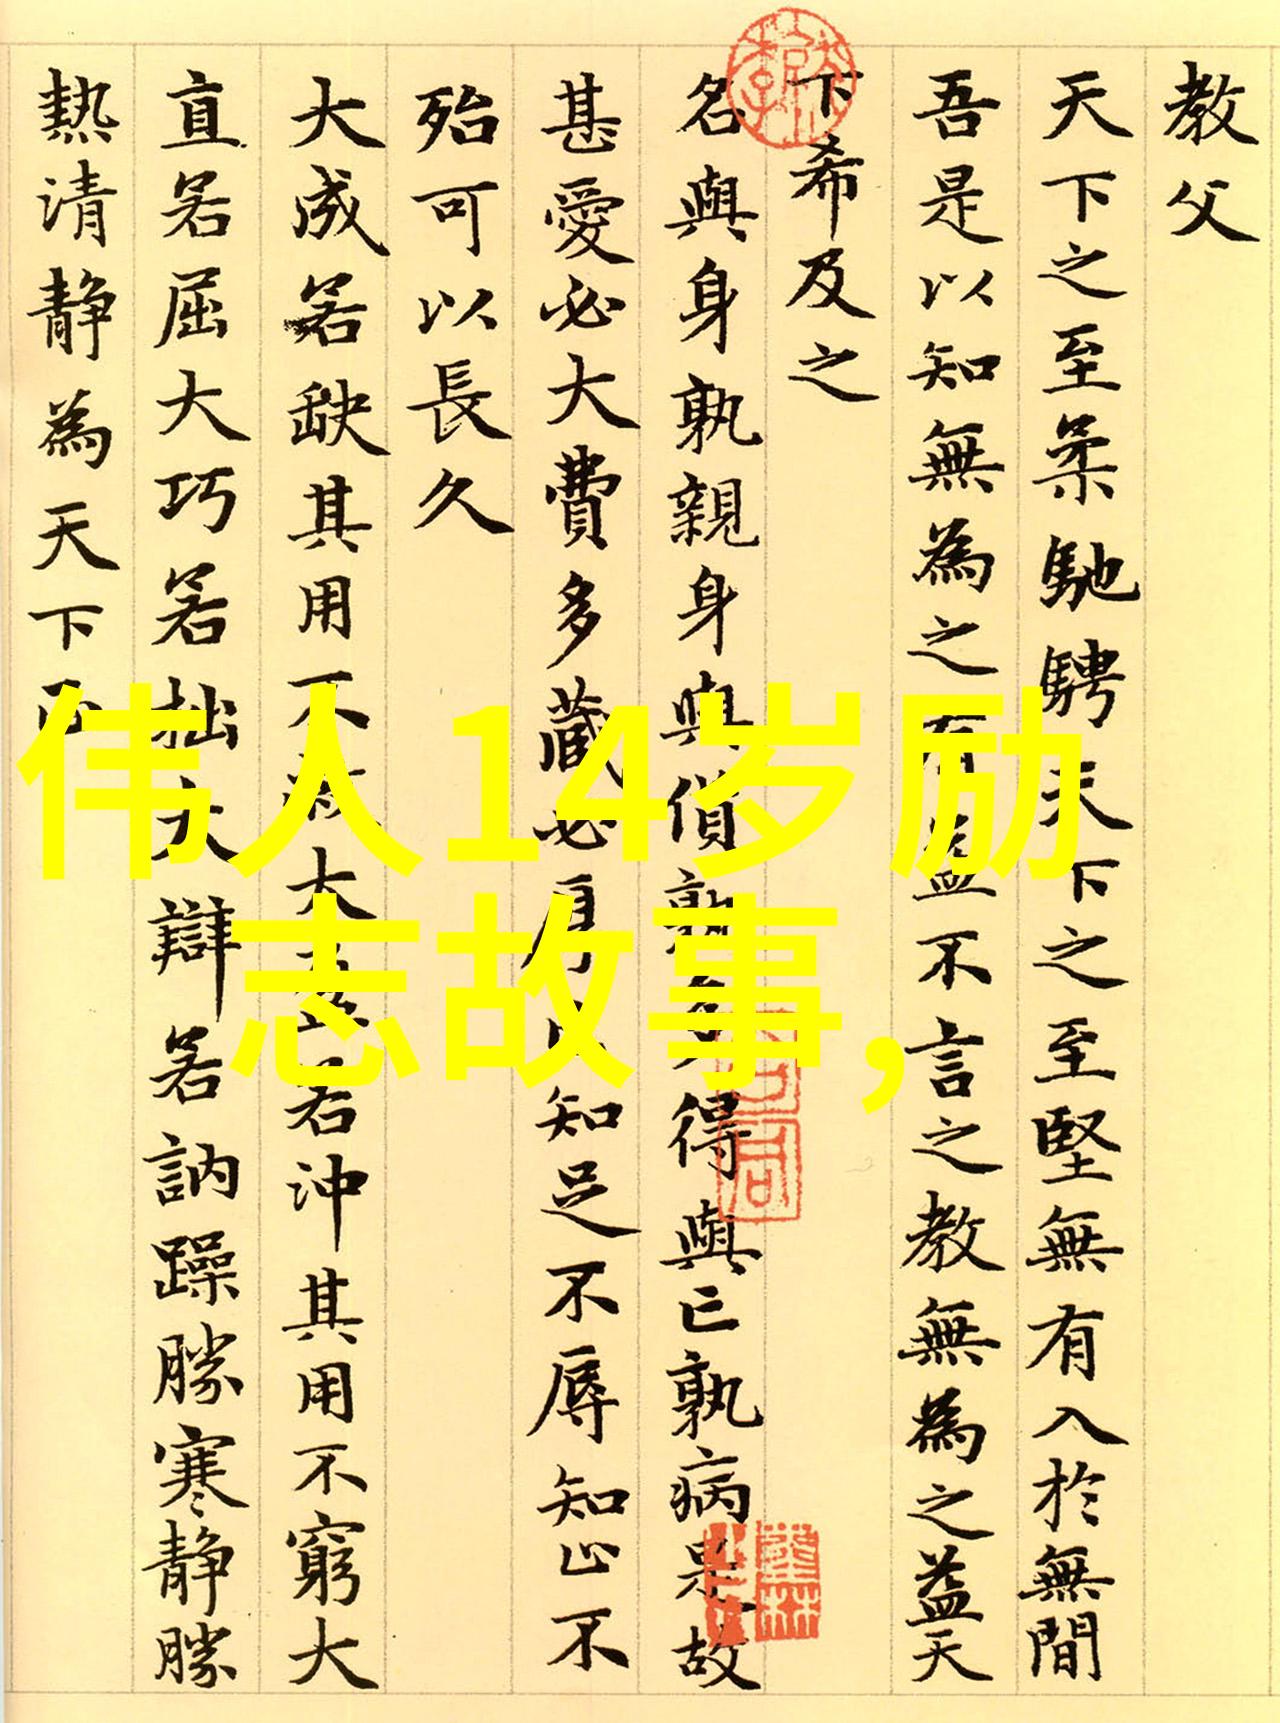 教父
天下之至柔馳騁天下之至堅無有入於無間
吾是以知無為之有益不言之教無為之益天
下希及之
名與身孰親身與貨孰多得與亡孰病是故
甚愛必大費多藏必厚亡知足不辱知止不
殆可以長久
大成若缺其用不弊大盈若沖其用不窮大
直若屈大巧若拙大辯若訥躁勝寒靜勝
熱清靜為天下正
伟人14岁励
志故事,